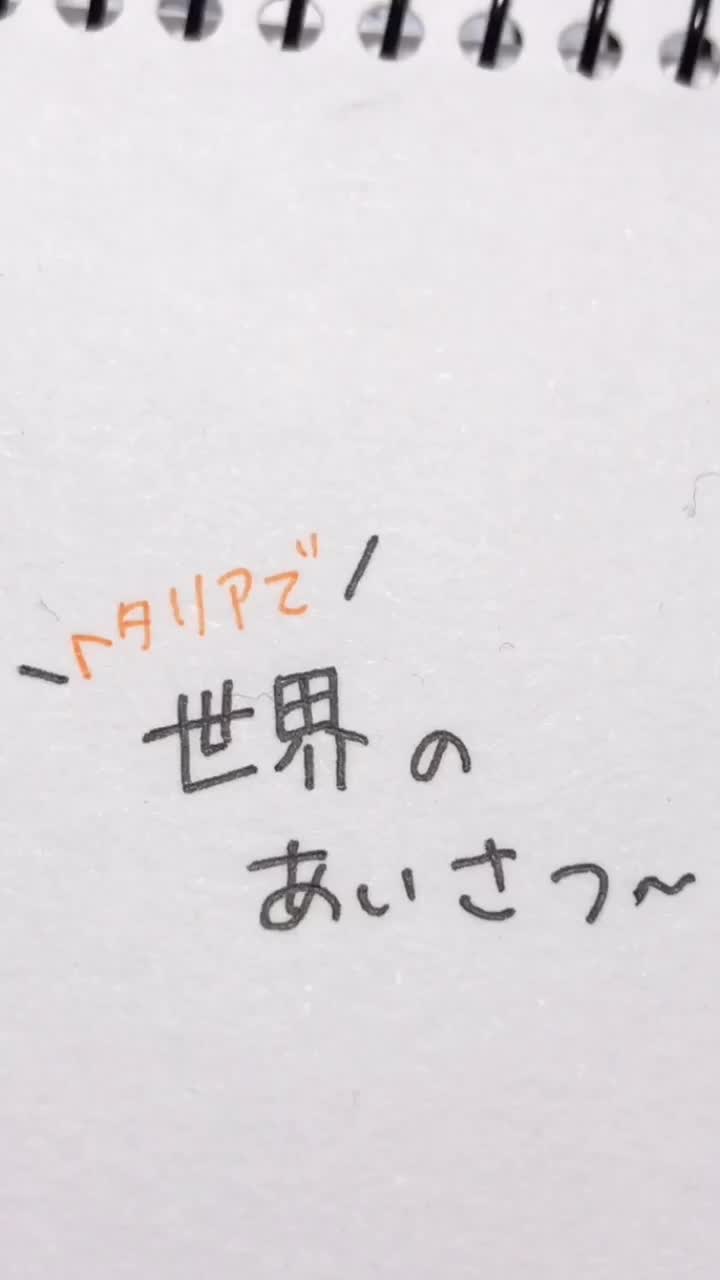 \ヘタリアで/
世界の
あいさつ~